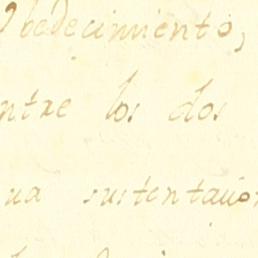 Obedecimiento,
ntre los dos
ua sustentacion